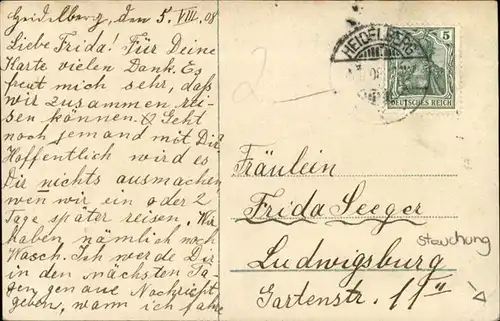 Heidelberg, den 5. VIII. 08
Liebe Frida! Für Deine
Karte vielen Dank. Es
freut mich sehr, daß
wir zusammen rei-
sen können. Geht
noch jemand mit Dir?
Hoffentlich wird es
Dir nichts ausmachen
wen wir ein oder 2
Tage später reisen, Wir
haben nämlich noch
Wasch. Ich werde Dir
in den nächsten Ta-
gen genaue Nachricht
geben, wann ich fahre
2
HEIDELBERG
5
DEUTSCHES REICH
Fräulein
Frida Seeger
Stauchung
Ludwigsburg
Gartenstr. 11